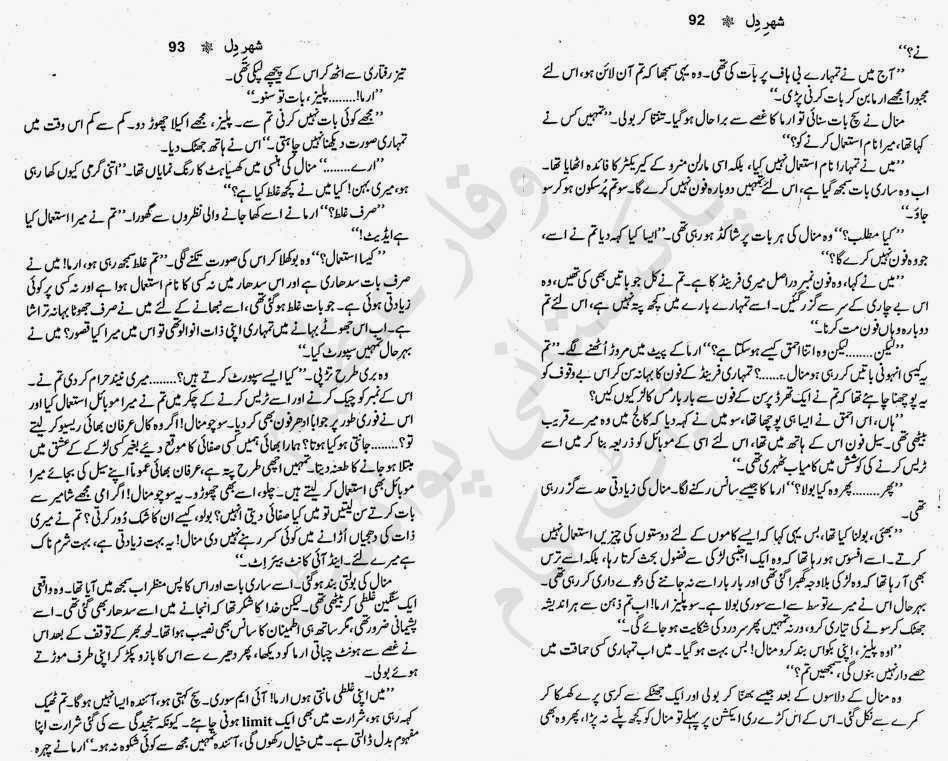 شہرِ دل ❋ 92
نے؟‘‘
’’آج میں نے تمہارے بی ہاف پر بات کی تھی۔ وہ یہی سمجھا کہ تم آن لائن ہو، اس لئے
مجبوراً مجھے ارما بن کر بات کرنی پڑی۔‘‘
منال نے سچ بات سنائی تو ارما کا غصے سے برا حال ہو گیا۔ تنتنا کر بولی۔ ’’تمہیں کس نے
کہا تھا، میرا نام استعمال کرنے کو؟‘‘
’’میں نے تمہارا نام استعمال نہیں کیا، بلکہ اسی مارلن منرو کے کیریکٹر کا فائدہ اٹھایا تھا۔
اب وہ ساری بات سمجھ گیا ہے، اس لئے تمہیں دوبارہ فون نہیں کرے گا۔ سو تم پُرسکون ہو کر سو
جاؤ۔‘‘
’’کیا مطلب؟‘‘ وہ منال کی ہر بات پر شاکڈ ہو رہی تھی۔ ’’ایسا کیا کہہ دیا تم نے اسے،
جو وہ فون نہیں کرے گا؟‘‘
’’میں نے کہا، وہ فون نمبر دراصل میری فرینڈ کا ہے۔ تم نے کل جو باتیں بھی کی تھیں، وہ
اس بے چاری کے سر سے گزر گئیں۔ اسے تمہارے بارے میں کچھ پتہ نہیں ہے، اس لئے تم
دوبارہ وہاں فون مت کرنا۔‘‘
’’لیکن........ لیکن وہ اتنا احمق کیسے ہو سکتا ہے؟‘‘ ارما کے پیٹ میں مروڑ اُٹھنے لگے۔ ’’تم
یہ کیسی انہونی باتیں کر رہی ہو منال........؟ تمہاری فرینڈ کے فون کا بہانہ سن کر اس بے وقوف کو
یہ پوچھنا چاہئے تھا کہ تم نے ایک تھرڈ پرسن کے فون سے بار بار مس کالز کیوں کیں؟‘‘
’’ہاں، اس احمق نے ایسا ہی پوچھا تھا، سو میں نے کہہ دیا کہ کالج میں وہ میرے قریب
بیٹھی تھی۔ سیل فون اس کے ہاتھ میں تھا، اس لئے اسی کے موبائل کو ذریعہ بنا کر میں اسے
ٹریس کرنے کی کوشش میں کامیاب ٹھہری تھی۔‘‘
’’پھر........ پھر وہ کیا بولا؟‘‘ ارما کا جیسے سانس رکنے لگا۔ منال کی زیادتی حد سے گزر رہی
تھی۔
’’بھئی، بولنا کیا تھا، بس یہی کہا کہ ایسے کاموں کے لئے دوستوں کی چیزیں استعمال نہیں
کرتے۔ اسے افسوس ہو رہا تھا کہ وہ ایک اجنبی لڑکی سے فضول بحث کرتا رہا، بلکہ اسے ترس
بھی آ رہا تھا کہ وہ لڑکی بلاوجہ گھبرا گئی تھی اور بار بار اسے نہ جاننے کی دعوے داری کر رہی تھی۔
بہرحال اس نے میرے توسط سے اسے سوری بولا ہے۔ سو پلیز ارما! اب تم ذہن سے ہر اندیشہ
جھٹک کر سونے کی تیاری کرو، ورنہ تمہیں پھر سر درد کی شکایت ہو جائے گی۔‘‘
’’اوہ پلیز، اپنی بکواس بند کرو منال! بس بہت ہو گیا۔ میں اب تمہاری کسی حماقت میں
حصے دار نہیں بنوں گی، سمجھیں تم؟‘‘
وہ منال کے دلاسوں کے بعد جیسے بھنا کر بولی اور ایک جھٹکے سے کرسی پرے کھسکا کر
کمرے سے نکل گئی۔ اس کے اس کڑے ری ایکشن پر پہلے تو منال کو کچھ پلے نہ پڑا، پھر وہ بھی
شہرِ دل ❋ 93
تیز رفتاری سے اٹھ کر اس کے پیچھے لپکی تھی۔
’’ارما!........ پلیز، بات تو سنو۔‘‘
’’مجھے کوئی بات نہیں کرنی تم سے۔ پلیز، مجھے اکیلا چھوڑ دو۔ کم سے کم اس وقت میں
تمہاری صورت دیکھنا نہیں چاہتی۔‘‘ اس نے ہاتھ جھٹک دیا۔
’’ارے........‘‘ منال کی ہنسی میں کھسیاہٹ کا رنگ نمایاں تھا۔ ’’اتنی گرمی کیوں کھا رہی
ہو، میری بہن! کیا میں نے کچھ غلط کیا ہے؟‘‘
’’صرف غلط؟‘‘ ارما نے اسے کھا جانے والی نظروں سے گھورا۔ ’’تم نے میرا استعمال کیا
ہے ایڈیٹ!‘‘
’’کیسا استعمال؟‘‘ وہ بوکھلا کر اس کی صورت تکنے لگی۔ ’’تم غلط سمجھ رہی ہو، ارما! میں نے
صرف بات سدھاری ہے اور اس سدھار میں نہ کسی کا نام استعمال ہوا ہے اور نہ کسی پر کوئی
زیادتی ہوئی ہے۔ جو بات غلط ہو گئی تھی، اسے نبھانے کے لئے میں نے صرف جھوٹا بہانہ تراشا
ہے۔ اب اس جھوٹے بہانے میں تمہاری اپنی ذات انوالو تھی تو اس میں میرا کیا قصور؟ میں نے
بہرحال تمہیں سپورٹ کیا۔‘‘
وہ بری طرح تڑپی۔ ’’کیا ایسے سپورٹ کرتے ہیں؟........ میری نیند حرام کر دی تم نے۔
اس کے نمبر کو چیک کرنے اور اسے ٹریس کرنے کے چکر میں تم نے میرا موبائل استعمال کیا اور
اس نے فوری طور پر جواباً ادھر فون بھی کر دیا۔ سوچو منال! اگر وہ کال عرفان بھائی ریسیو کر لیتے
تو؟........ جانتی ہو کیا ہوتا؟ ہمارا بھائی ہمیں کسی صفائی کا موقع دیئے بغیر کسی لڑکے کے عشق میں
مبتلا ہو جانے کا طعنہ دیتا۔ تمہیں اچھی طرح پتہ ہے، عرفان بھائی عموماً اپنے سیل کی بجائے میرا
موبائل بھی استعمال کر لیتے ہیں۔ چلو، اسے بھی چھوڑو۔ یہ سوچو منال! اگر امی مجھے شامیر سے
بات کرتے سن لیتیں تو میں کیا صفائی دیتی انہیں؟ بولو، کیسے ان کا شک دُور کرتی؟ تم نے میری
ذات کی دھجیاں اُڑانے میں کوئی کسر رہنے نہیں دی منال! یہ بہت زیادتی ہے، بہت شرم ناک
ہے میرے لئے۔ اینڈ آئی کانٹ بیئر اِٹ۔‘‘
منال کی بولتی بند ہو گئی۔ اسے ساری بات اور اس کا پس منظر اب سمجھ میں آیا تھا۔ وہ واقعی
ایک سنگین غلطی کر بیٹھی تھی۔ لیکن خدا کا شکر تھا کہ انجانے میں اسے سدھار بھی گئی تھی۔ اسے
پشیمانی ضرور تھی، مگر ساتھ ہی اطمینان کا سانس بھی نصیب ہوا تھا۔ لمحہ بھر کے توقف کے بعد اس
نے غصے سے ہونٹ چباتی ارما کو دیکھا، پھر دھیرے سے اس کا بازو پکڑ کر اپنی طرف موڑتے
ہوئے بولی۔
’’میں اپنی غلطی مانتی ہوں ارما! آئی ایم سوری۔ سچ کہتی ہو، آئندہ ایسا نہیں ہو گا۔ تم ٹھیک
کہہ رہی ہو، شرارت میں بھی ایک limit ہونی چاہئے۔ کیونکہ سنجیدگی سے کی گئی شرارت اپنا
مفہوم بدل ڈالتی ہے۔ میں خیال رکھوں گی، آئندہ تمہیں مجھ سے کوئی شکوہ نہ ہو۔‘‘ ارما نے چہرہ